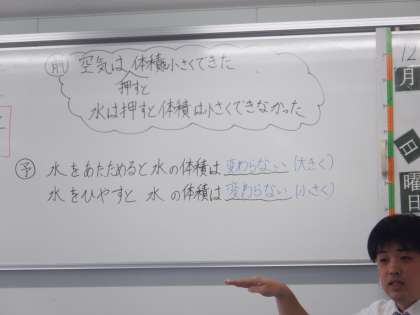 前 空気は体積小さくできた
押すと
水は押すと体積は小さくできなかった
予 水をあたためると水の体積は変わらない(大きく)
水をひやすと 水の体積は変わらない(小さく)
12
月
日
曜日